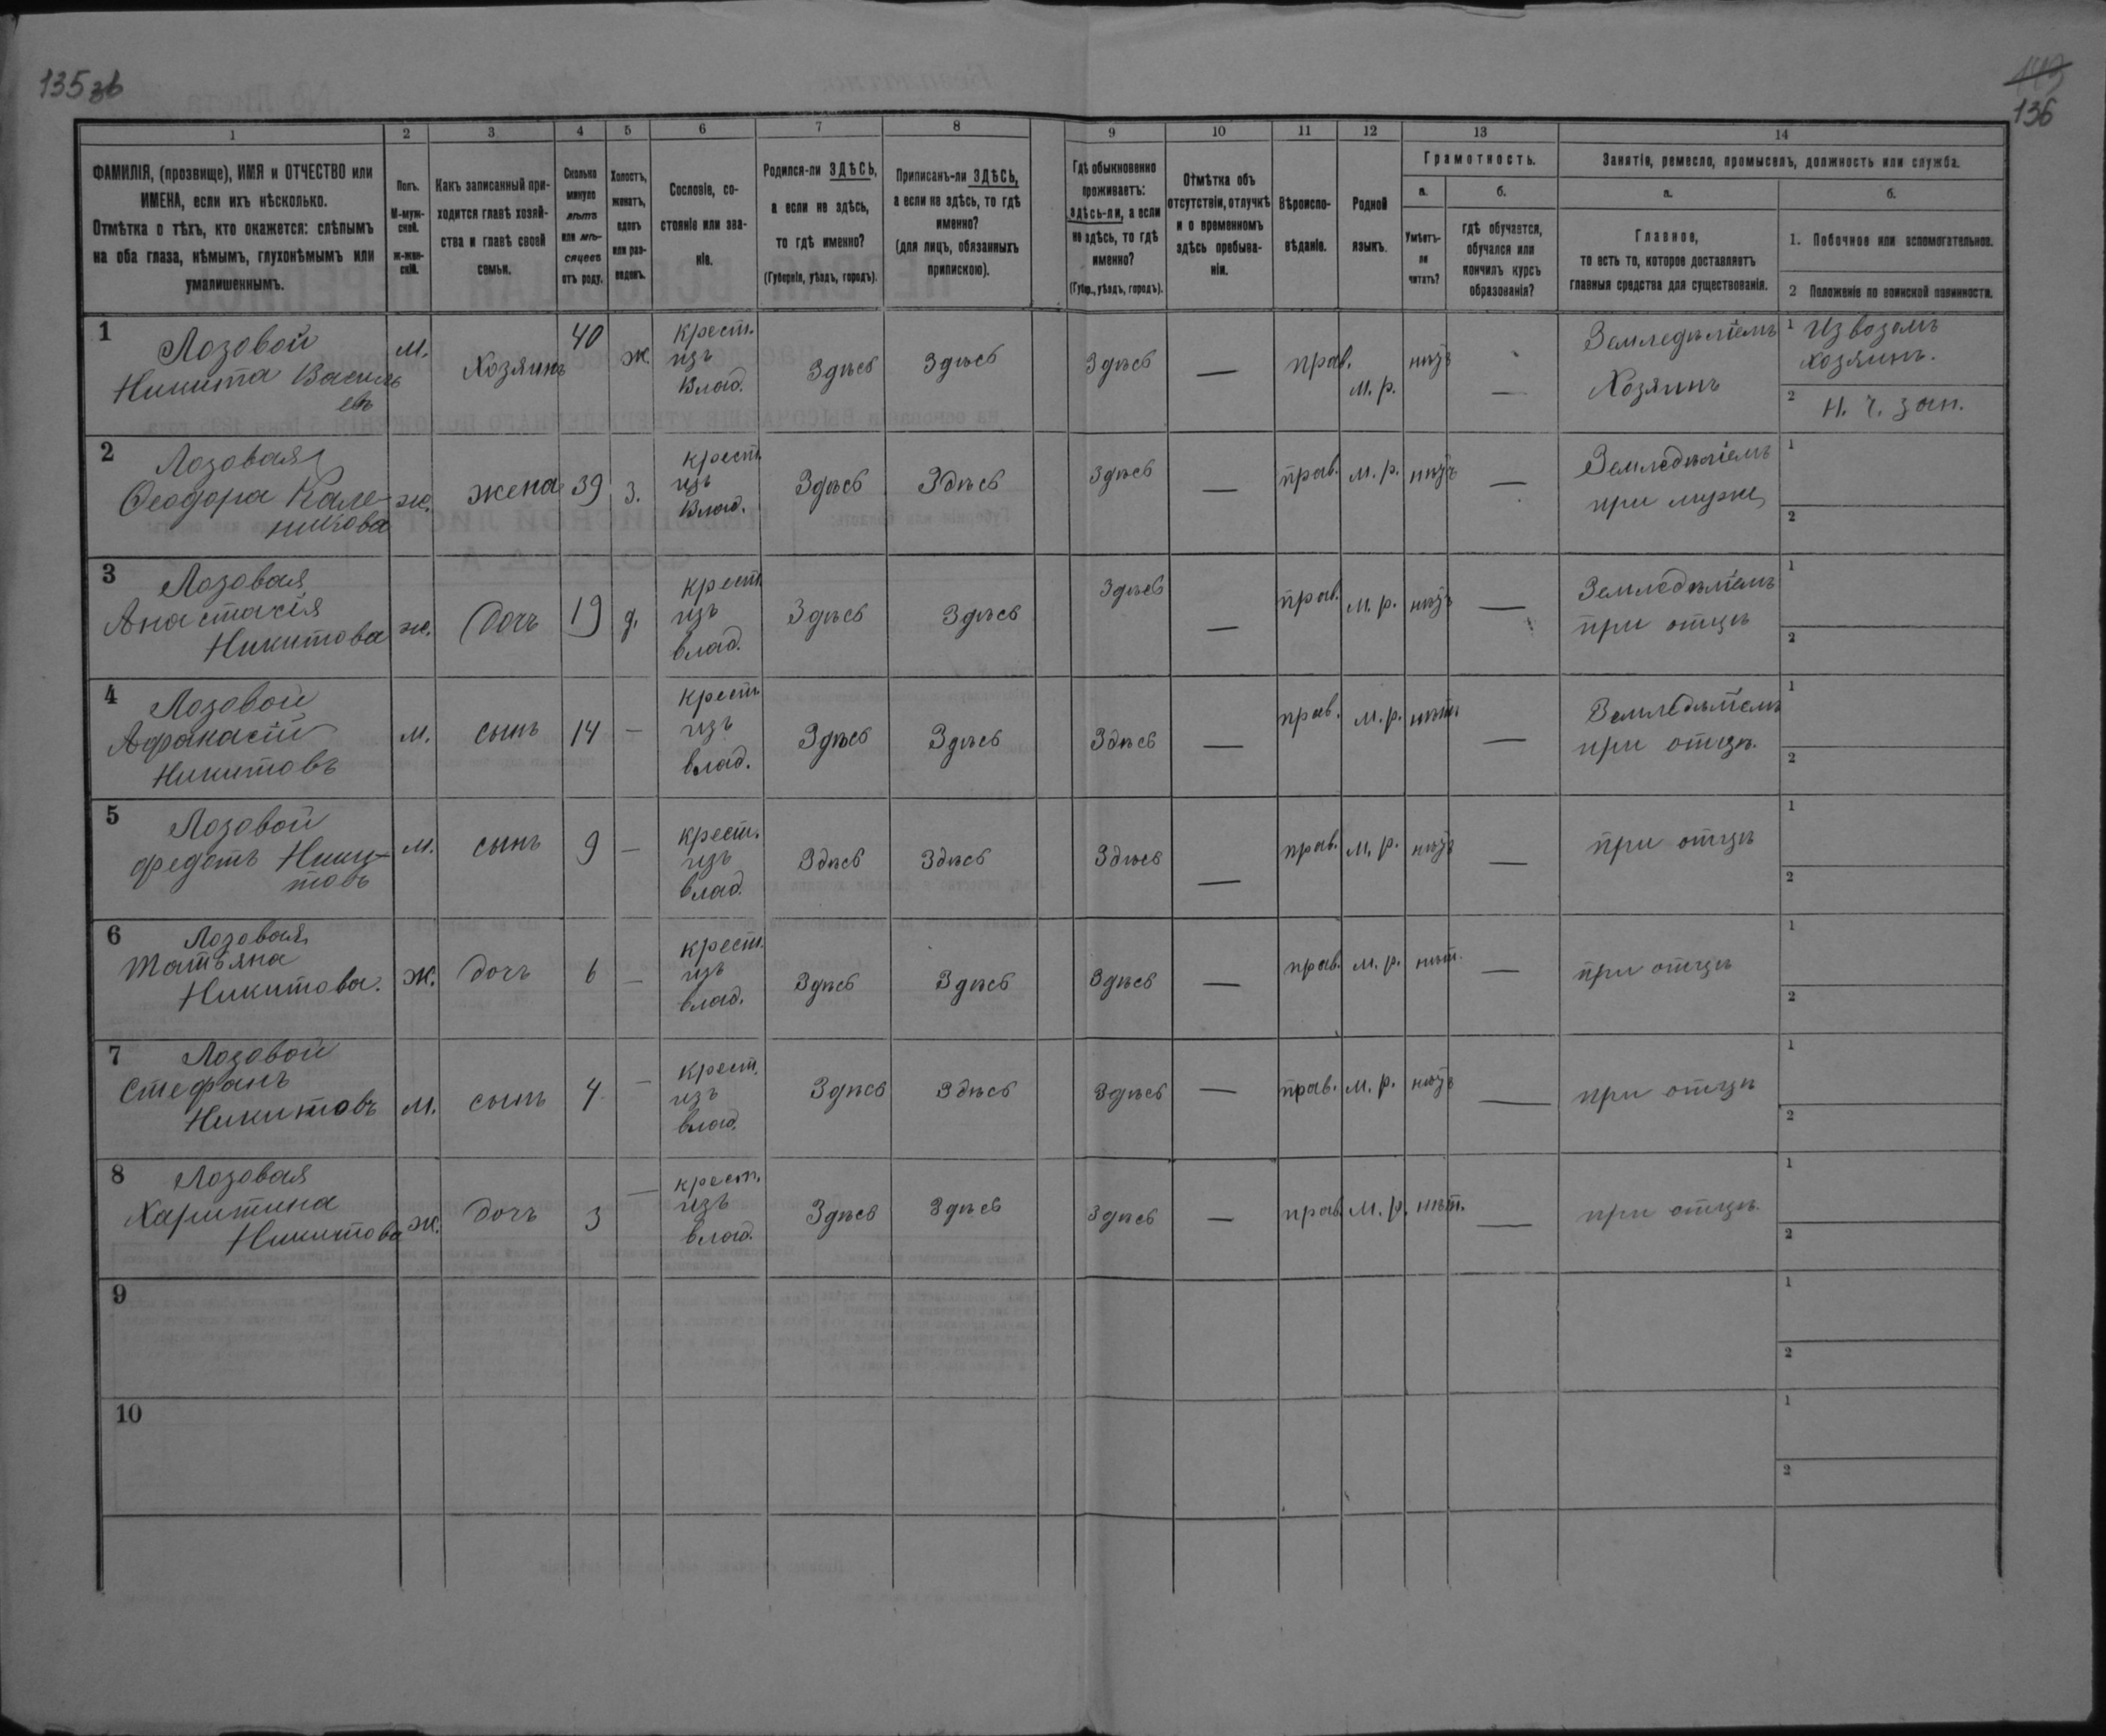 135 зв
143
136
1 2 3 4 5 6 7 8 9 10 11 12 13 14
ФАМИЛІЯ, (прозвище), ИМЯ и ОТЧЕСТВО или
ИМЕНА, если ихъ нѣсколько.
Отмѣтка о тѣхъ, кто окажется: слѣпымъ
на оба глаза, нѣмымъ, глухонѣмымъ или
умалишеннымъ.
Полъ.
М-муж-
ской.
ж-жен-
скій.
Какъ записанный при-
ходится главѣ хозяй-
ства и главѣ своей
семьи.
Сколько
минуло
лѣтъ
или мѣ-
сяцевъ
отъ роду.
Холостъ,
женатъ,
вдовъ
или раз-
веденъ.
Сословіе, со-
стояніе или зва-
ніе.
Родился-ли ЗДѢСЬ,
а если не здѣсь,
то гдѣ именно?
(Губернія, уѣздъ, городъ).
Приписанъ-ли ЗДѢСЬ,
а если не здѣсь, то гдѣ
именно?
(для лицъ, обязанныхъ
припискою).
Гдѣ обыкновенно
проживаетъ:
здѣсь-ли, а если
не здѣсь, то гдѣ
именно?
(Губер., уѣздъ, городъ).
Отмѣтка объ
отсутствіи, отлучкѣ
и о временномъ
здѣсь пребыва-
ніи.
Вѣроиспо-
вѣданіе.
Родной
языкъ.
Грамотность.
а.
Умѣетъ-
ли
читать?
б.
гдѣ обучается,
обучался или
кончилъ курсъ
образованія?
Занятіе, ремесло, промыселъ, должность или служба.
а.
Главное,
то есть то, которое доставляетъ
главныя средства для существованія.
б.
1. Побочное или вспомогательное.
2 Положеніе по воинской повинности.
1
Лозовой
Никита Василь
евъ
м.
Хозяинъ
40
ж
крест.
изъ
Влад.
Здѣсь
Здѣсь
Здѣсь
—
прав.
м. р.
нѣтъ
—
Земледѣліемъ
Хозяинъ
1 Извозомъ
хозяинъ.
2 Н. ч. зап.
2
Лозовая
Феодора Кале-
никова
ж.
жена
39
з.
крест.
изъ
Влад.
Здѣсь
Здѣсь
Здѣсь
—
прав.
м. р.
нѣтъ
—
Земледѣліемъ
при мужѣ
1
2
3
Лозовая
Анастасія
Никитова
ж.
дочь
19
д.
крест.
изъ
влад.
Здѣсь
Здѣсь
Здѣсь
—
прав.
м. р.
нѣтъ
—
Земледѣліемъ
при отцѣ
1
2
4
Лозовой
Афанасій
Никитовъ
м.
сынъ
14
—
крест.
изъ
влад.
Здѣсь
Здѣсь
Здѣсь
—
прав.
м. р.
нѣтъ
—
Земледѣліемъ
при отцѣ.
1
2
5
Лозовой
Федотъ Ники-
товъ
м.
сынъ
9
—
крест.
изъ
влад.
Здѣсь
Здѣсь
Здѣсь
—
прав.
м. р.
нѣтъ
—
при отцѣ
1
2
6
Лозовая
Татьяна
Никитова.
ж.
дочь
6
—
крест.
изъ
влад.
Здѣсь
Здѣсь
Здѣсь
—
прав.
м. р.
нѣт.
—
при отцѣ
1
2
7
Лозовой
Стефанъ
Никитовъ
м.
сынъ
4
—
крест.
изъ
влад.
Здѣсь
Здѣсь
Здѣсь
—
прав.
м. р.
нѣтъ
—
при отцѣ
1
2
8
Лозовая
Харитина
Никитова
ж.
дочь
3
—
крест.
изъ
влад.
Здѣсь
Здѣсь
Здѣсь
—
прав.
м. р.
нѣт.
—
при отцѣ.
1
2
9
1
2
10
1
2